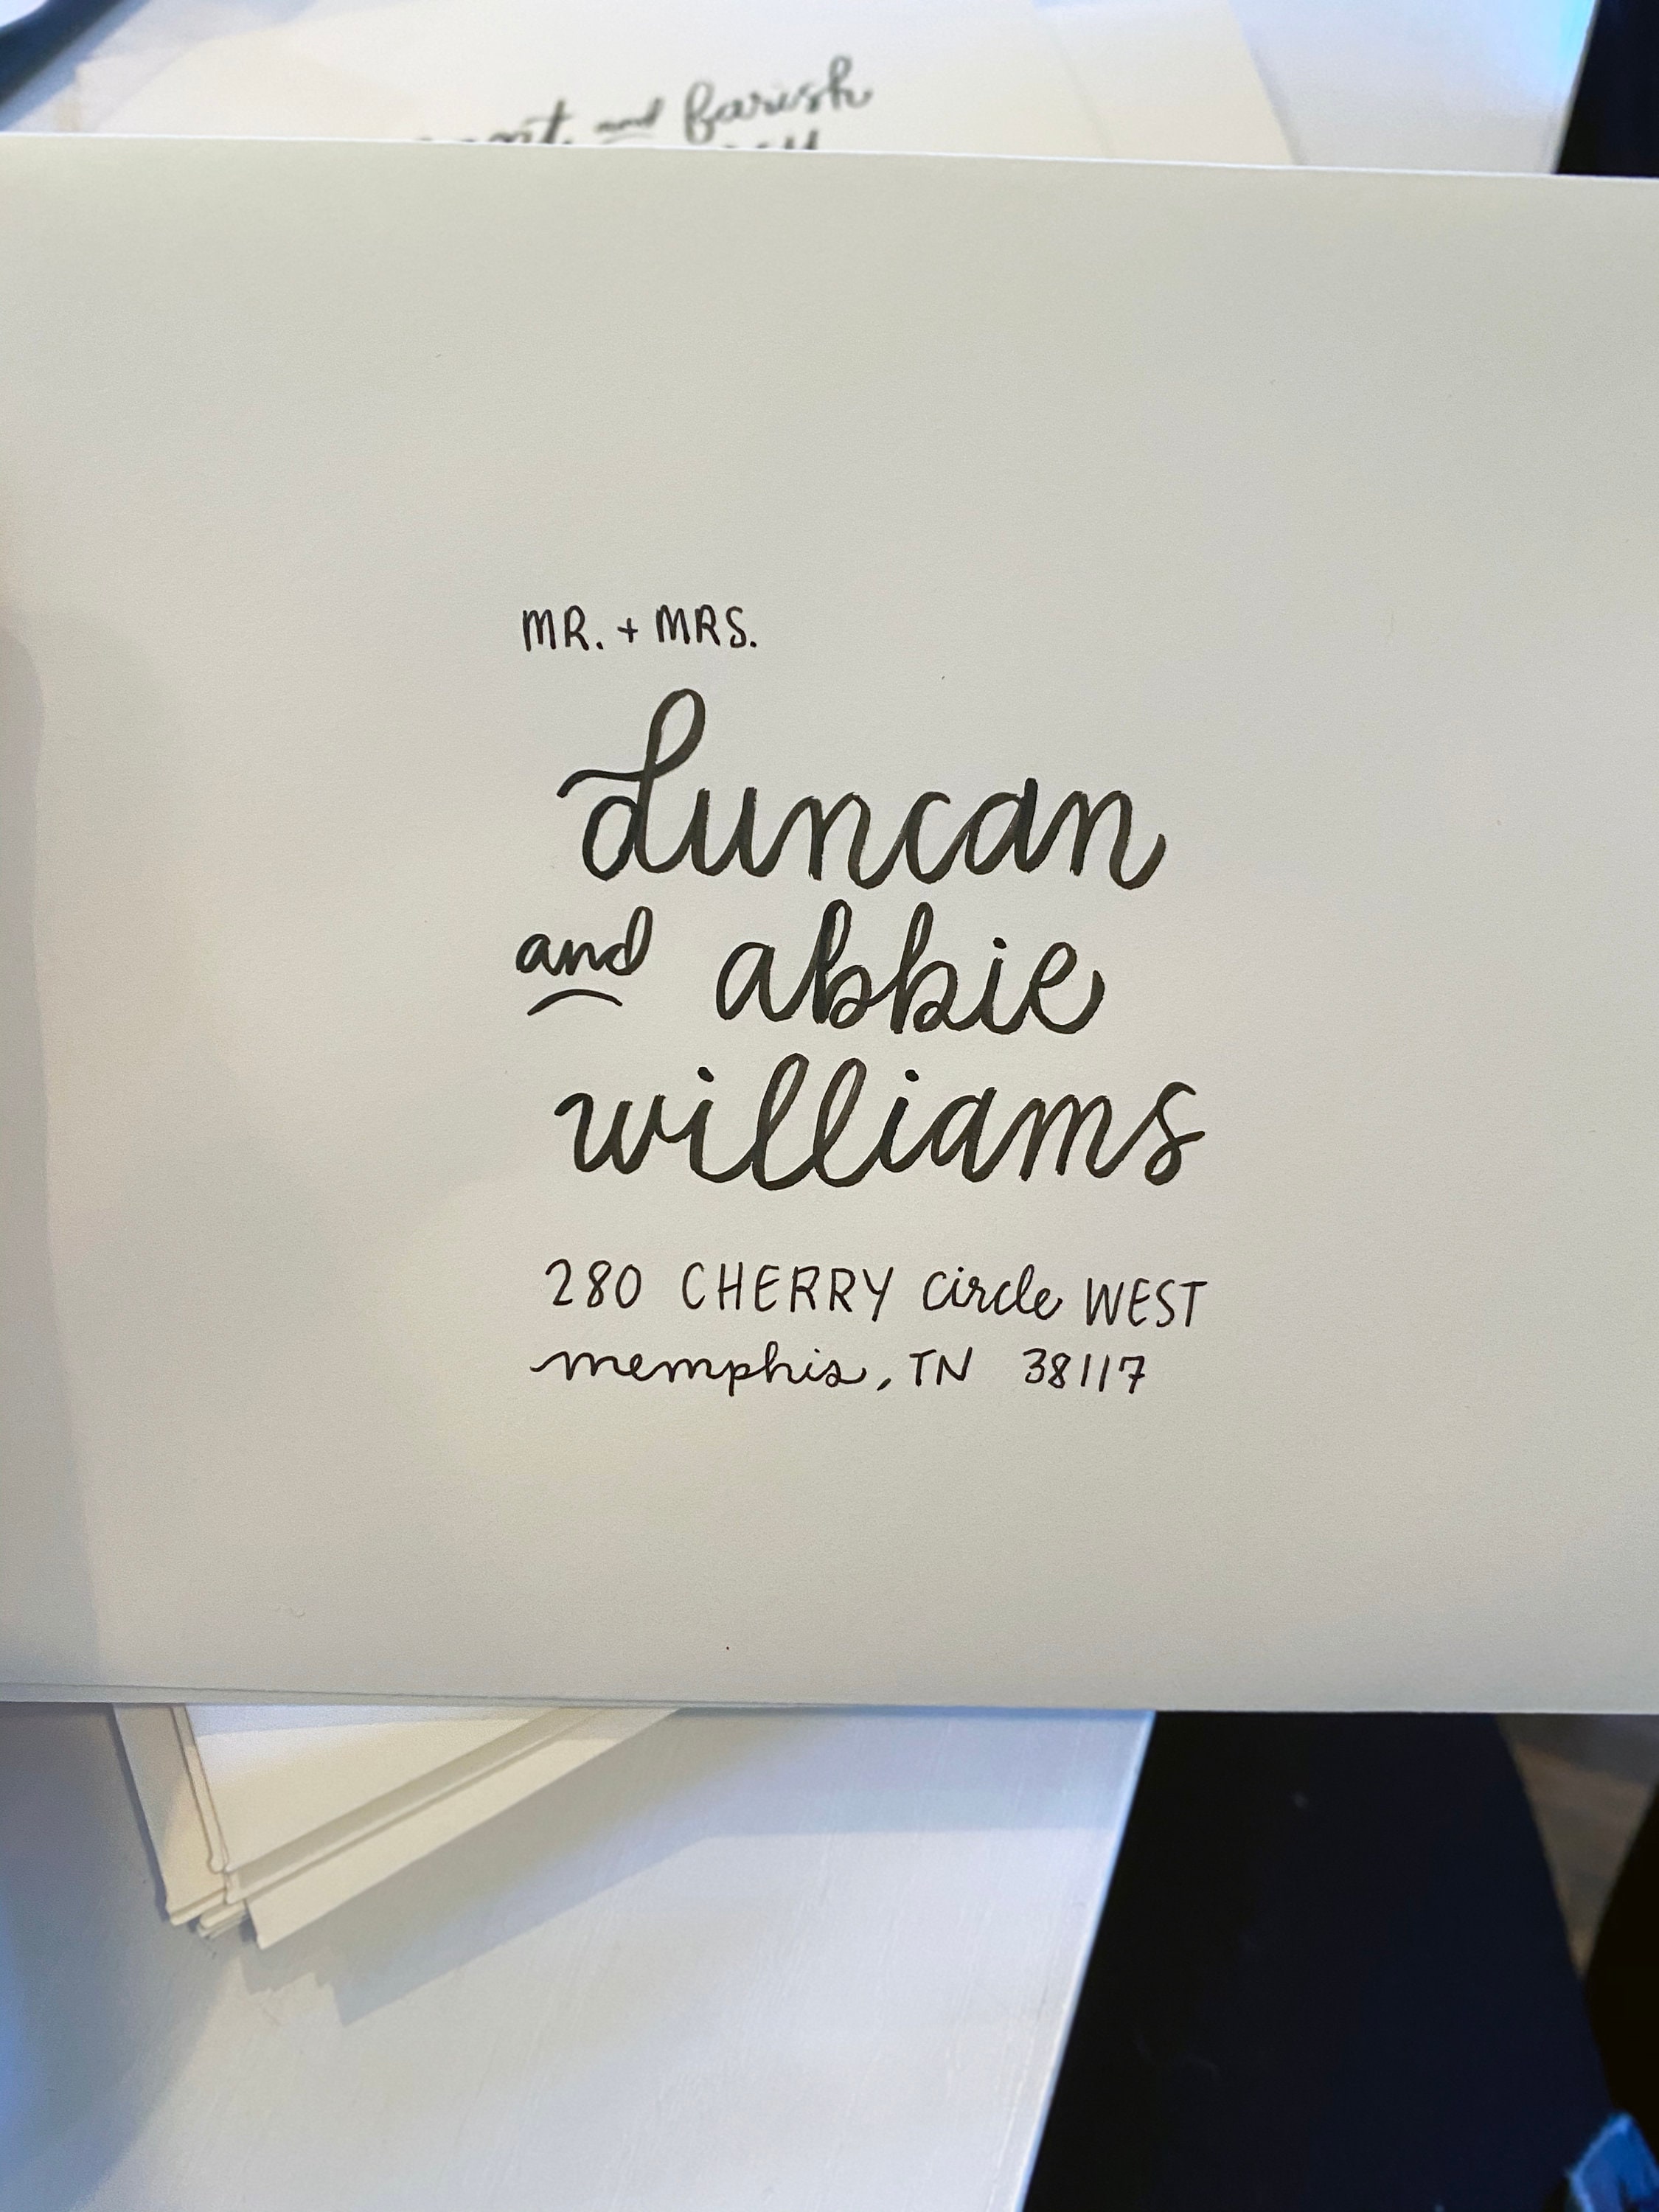 and farish
MR. + MRS.
duncan
and abbie
williams
280 CHERRY circle WEST
memphis, TN 38117